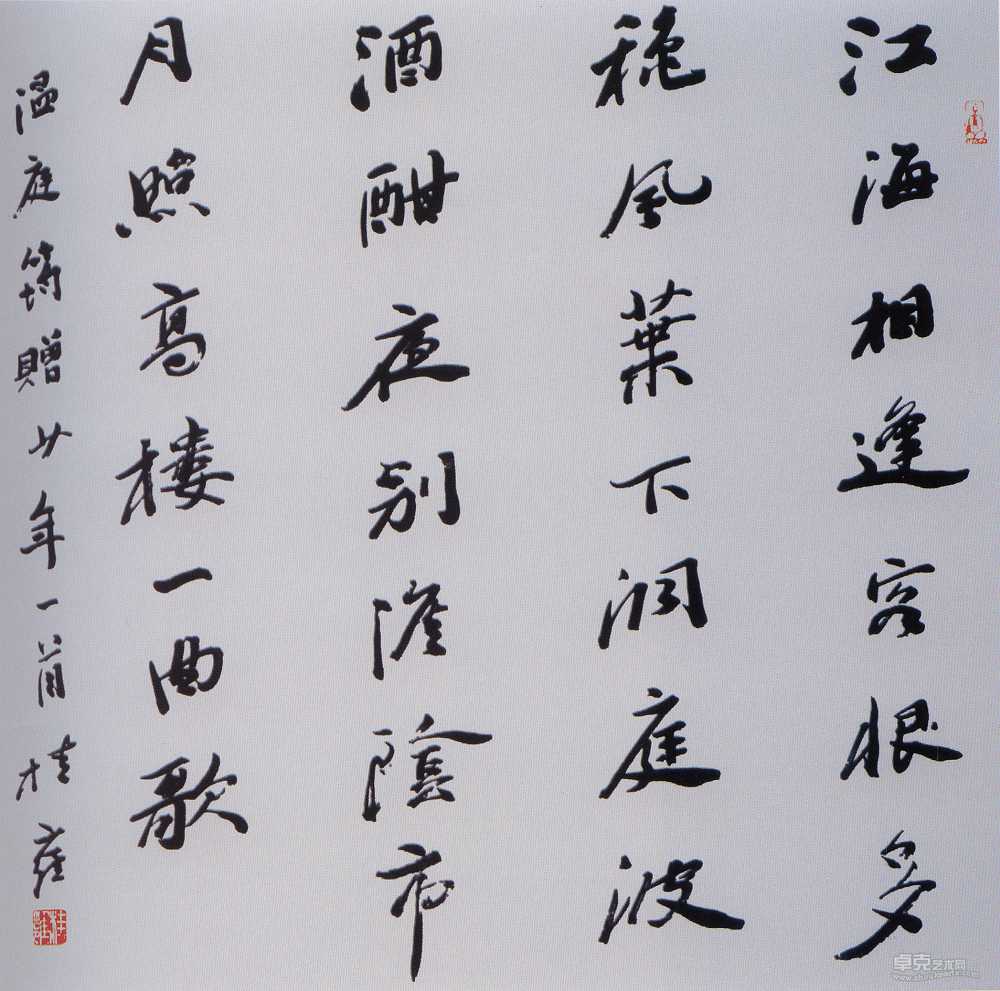 江海相逢客恨多
穐風葉下洞庭波
酒酣夜別淮陰市
月照高樓一曲歌
温庭筠贈少年一首 桂雍
卓克艺术网